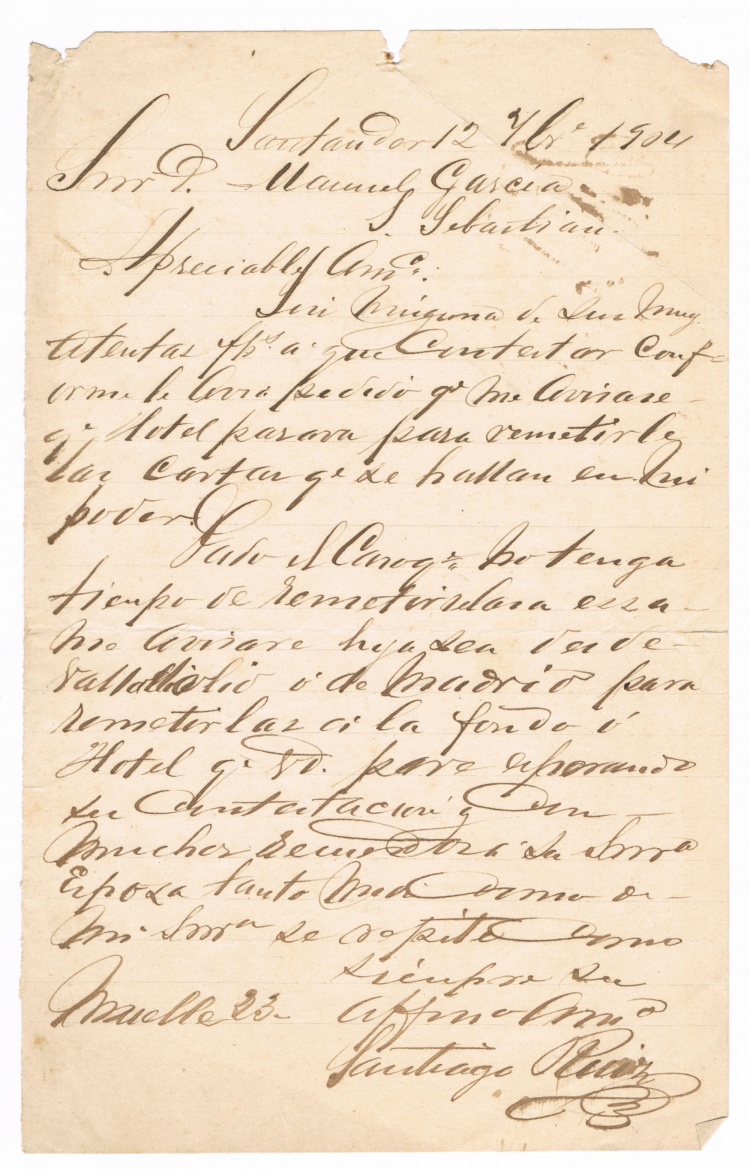 Santander 12 7bre 1904
Snr D. Manuel Garcia
S. Sebastian.
Apreciable Amo.
Sin ninguna de sus muy
atentas a que Contestar Conf-
orme le Avia pedido qe me Avisase
qe Hotel parava para remetirle
las cartas qe se hallan en mi
poder.
Dado el Caso qe no tenga
tiempo de remetirselas a essa
me Avisare hya sea desde
Valladolid o de Madrid para
remetirlas a la fonda ó
Hotel qe Vd. pare esperando
su Contestacion y Con
muchos recuerdos a su Snra
Esposa tanto mios Como de
mi Snra se repite Como
siempre su
Muelle 23 affmo Amo
Santiago Ruiz